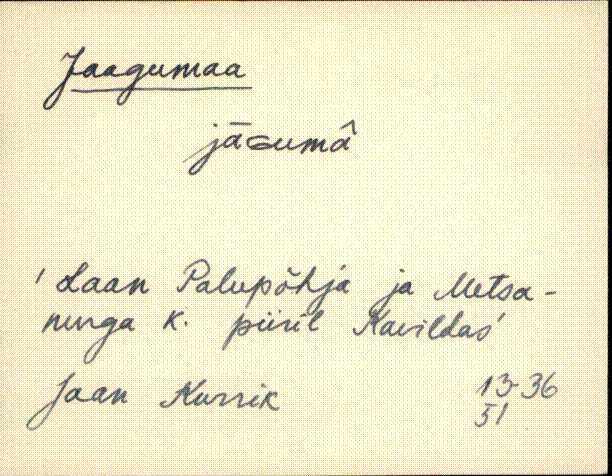 Jaagumaa
jāGumâ
' Laan Palupõhja ja Metsa-
nurga k. piiril Kavildas'
Jaan Kurrik 13-36
51